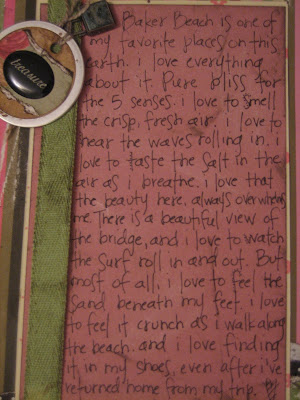 treasure
Baker Beach is one of
my favorite places on this
earth. i love everything
about it. Pure bliss for
the 5 senses. i love to smell
the crisp, fresh air. i love to
hear the waves rolling in. i
love to taste the salt in the
air as i breathe. i love that
the beauty here, always overwhelms
me. There is a beautiful view of
the bridge, and i love to watch
the surf roll in and out. But
most of all, i love to feel the
sand beneath my feet. i love
to feel it crunch as i walk along
the beach. and i love finding
it in my shoes, even after i've
returned home from my trip.